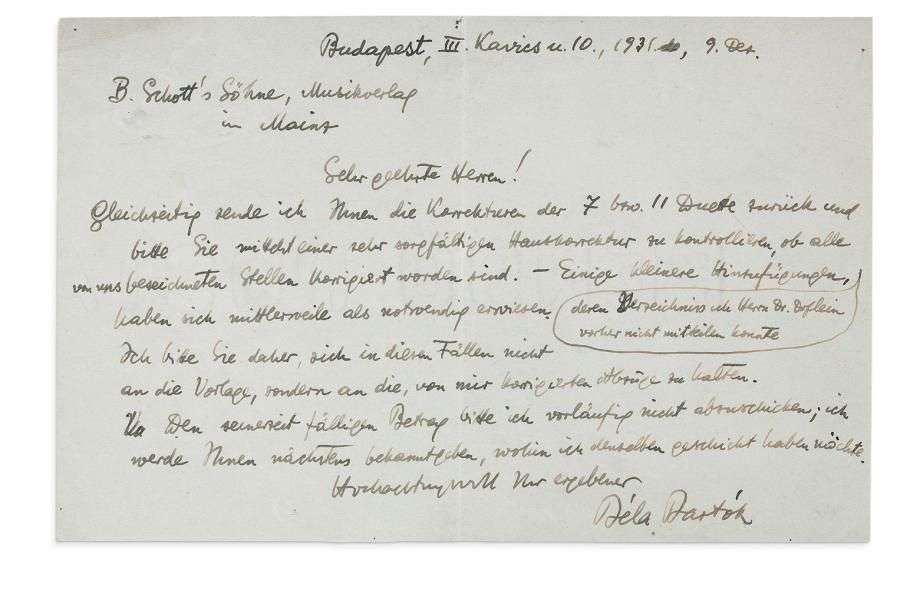 Budapest, III. Kavics u. 10., 1931. 9. Dez.
B. Schott's Söhne, Musikverlag
in Mainz
Sehr geehrte Herren!
Gleichzeitig sende ich Ihnen die Korrekturen der 7 bzw. 11 Duette zurück und
bitte Sie mittelst einer sehr sorgfältigen Hauskorrektur zu kontrollieren, ob alle
von uns bezeichneten Stellen korrigiert worden sind. – Einige kleinere Hinzufügungen,
deren Verzeichniss ich Herrn Dr. Doflein
vorher nicht mitteilen konnte
haben sich mittlerweile als notwendig erwiesen
Ich bitte Sie daher, sich in diesen Fällen nicht
an die Vorlage, sondern an die, von mir korrigierten Abzüge zu halten.
Den seinerzeit fälligen Betrag bitte ich vorläufig nicht abzuschicken; ich
werde Ihnen nächstens bekanntgeben, wohin ich denselben geschickt haben möchte.
Hochachtungsvoll Ihr ergebener
Béla Bartók